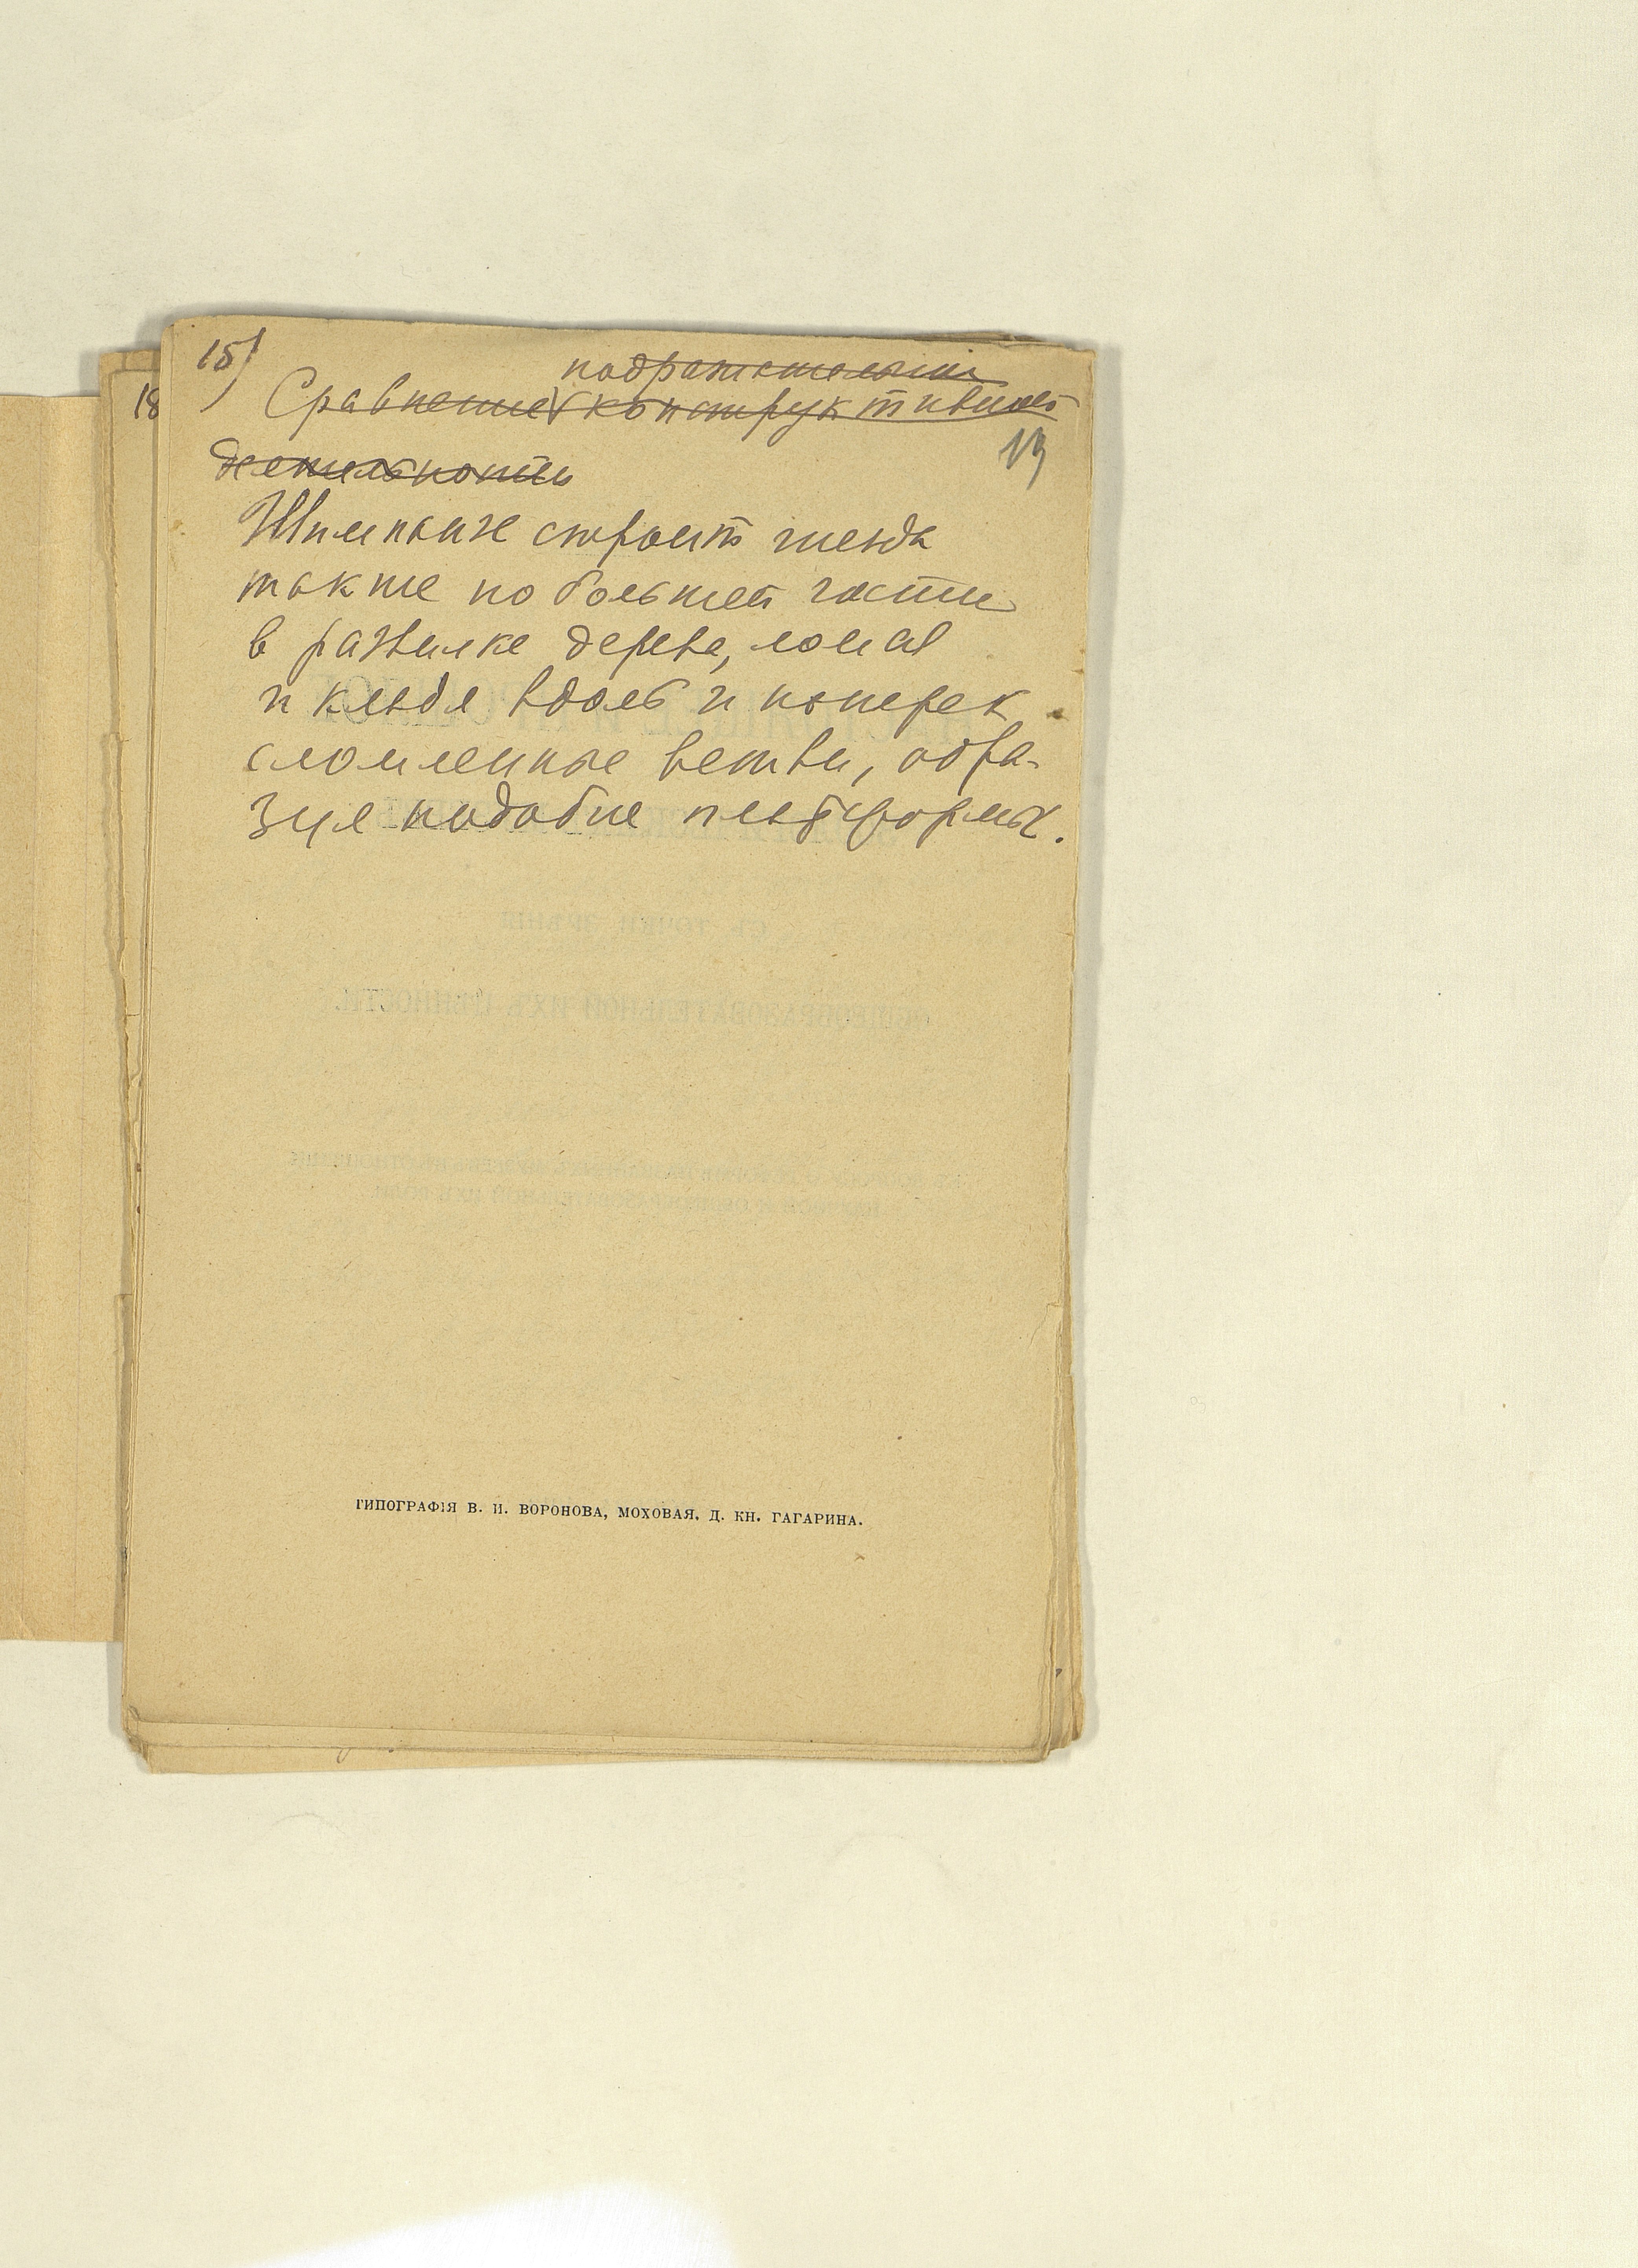 15)
подражательной
Сравнение конструктивной
19
18
деятельности
Шимпанзе строит гнезда
также по большей части
в развилке дерева, ломая
и кладя вдоль и поперек
сломленные ветви, обра-
зуя подобие платформы.
ТИПОГРАФІЯ В. И. ВОРОНОВА, МОХОВАЯ, Д. КН. ГАГАРИНА.